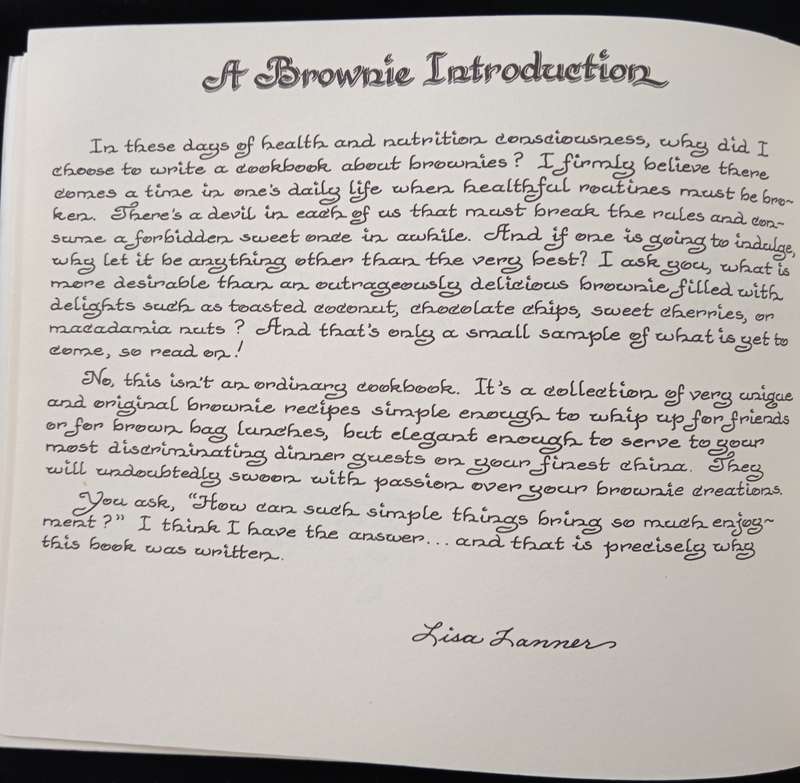 A Brownie Introduction
In these days of health and nutrition consciousness, why did I
choose to write a cookbook about brownies? I firmly believe there
comes a time in one's daily life when healthful routines must be bro~
ken. There's a devil in each of us that must break the rules and con~
sume a forbidden sweet once in awhile. And if one is going to indulge,
why let it be anything other than the very best? I ask you, what is
more desirable than an outrageously delicious brownie filled with
delights such as toasted coconut, chocolate chips, sweet cherries, or
macadamia nuts? And that's only a small sample of what is yet to
come, so read on!
No, this isn't an ordinary cookbook. It's a collection of very unique
and original brownie recipes simple enough to whip up for friends
or for brown bag lunches, but elegant enough to serve to your
most discriminating dinner guests on your finest china. They
will undoubtedly swoon with passion over your brownie creations.
You ask, "How can such simple things bring so much enjoy~
ment?" I think I have the answer... and that is precisely why
this book was written.
Lisa Tanner